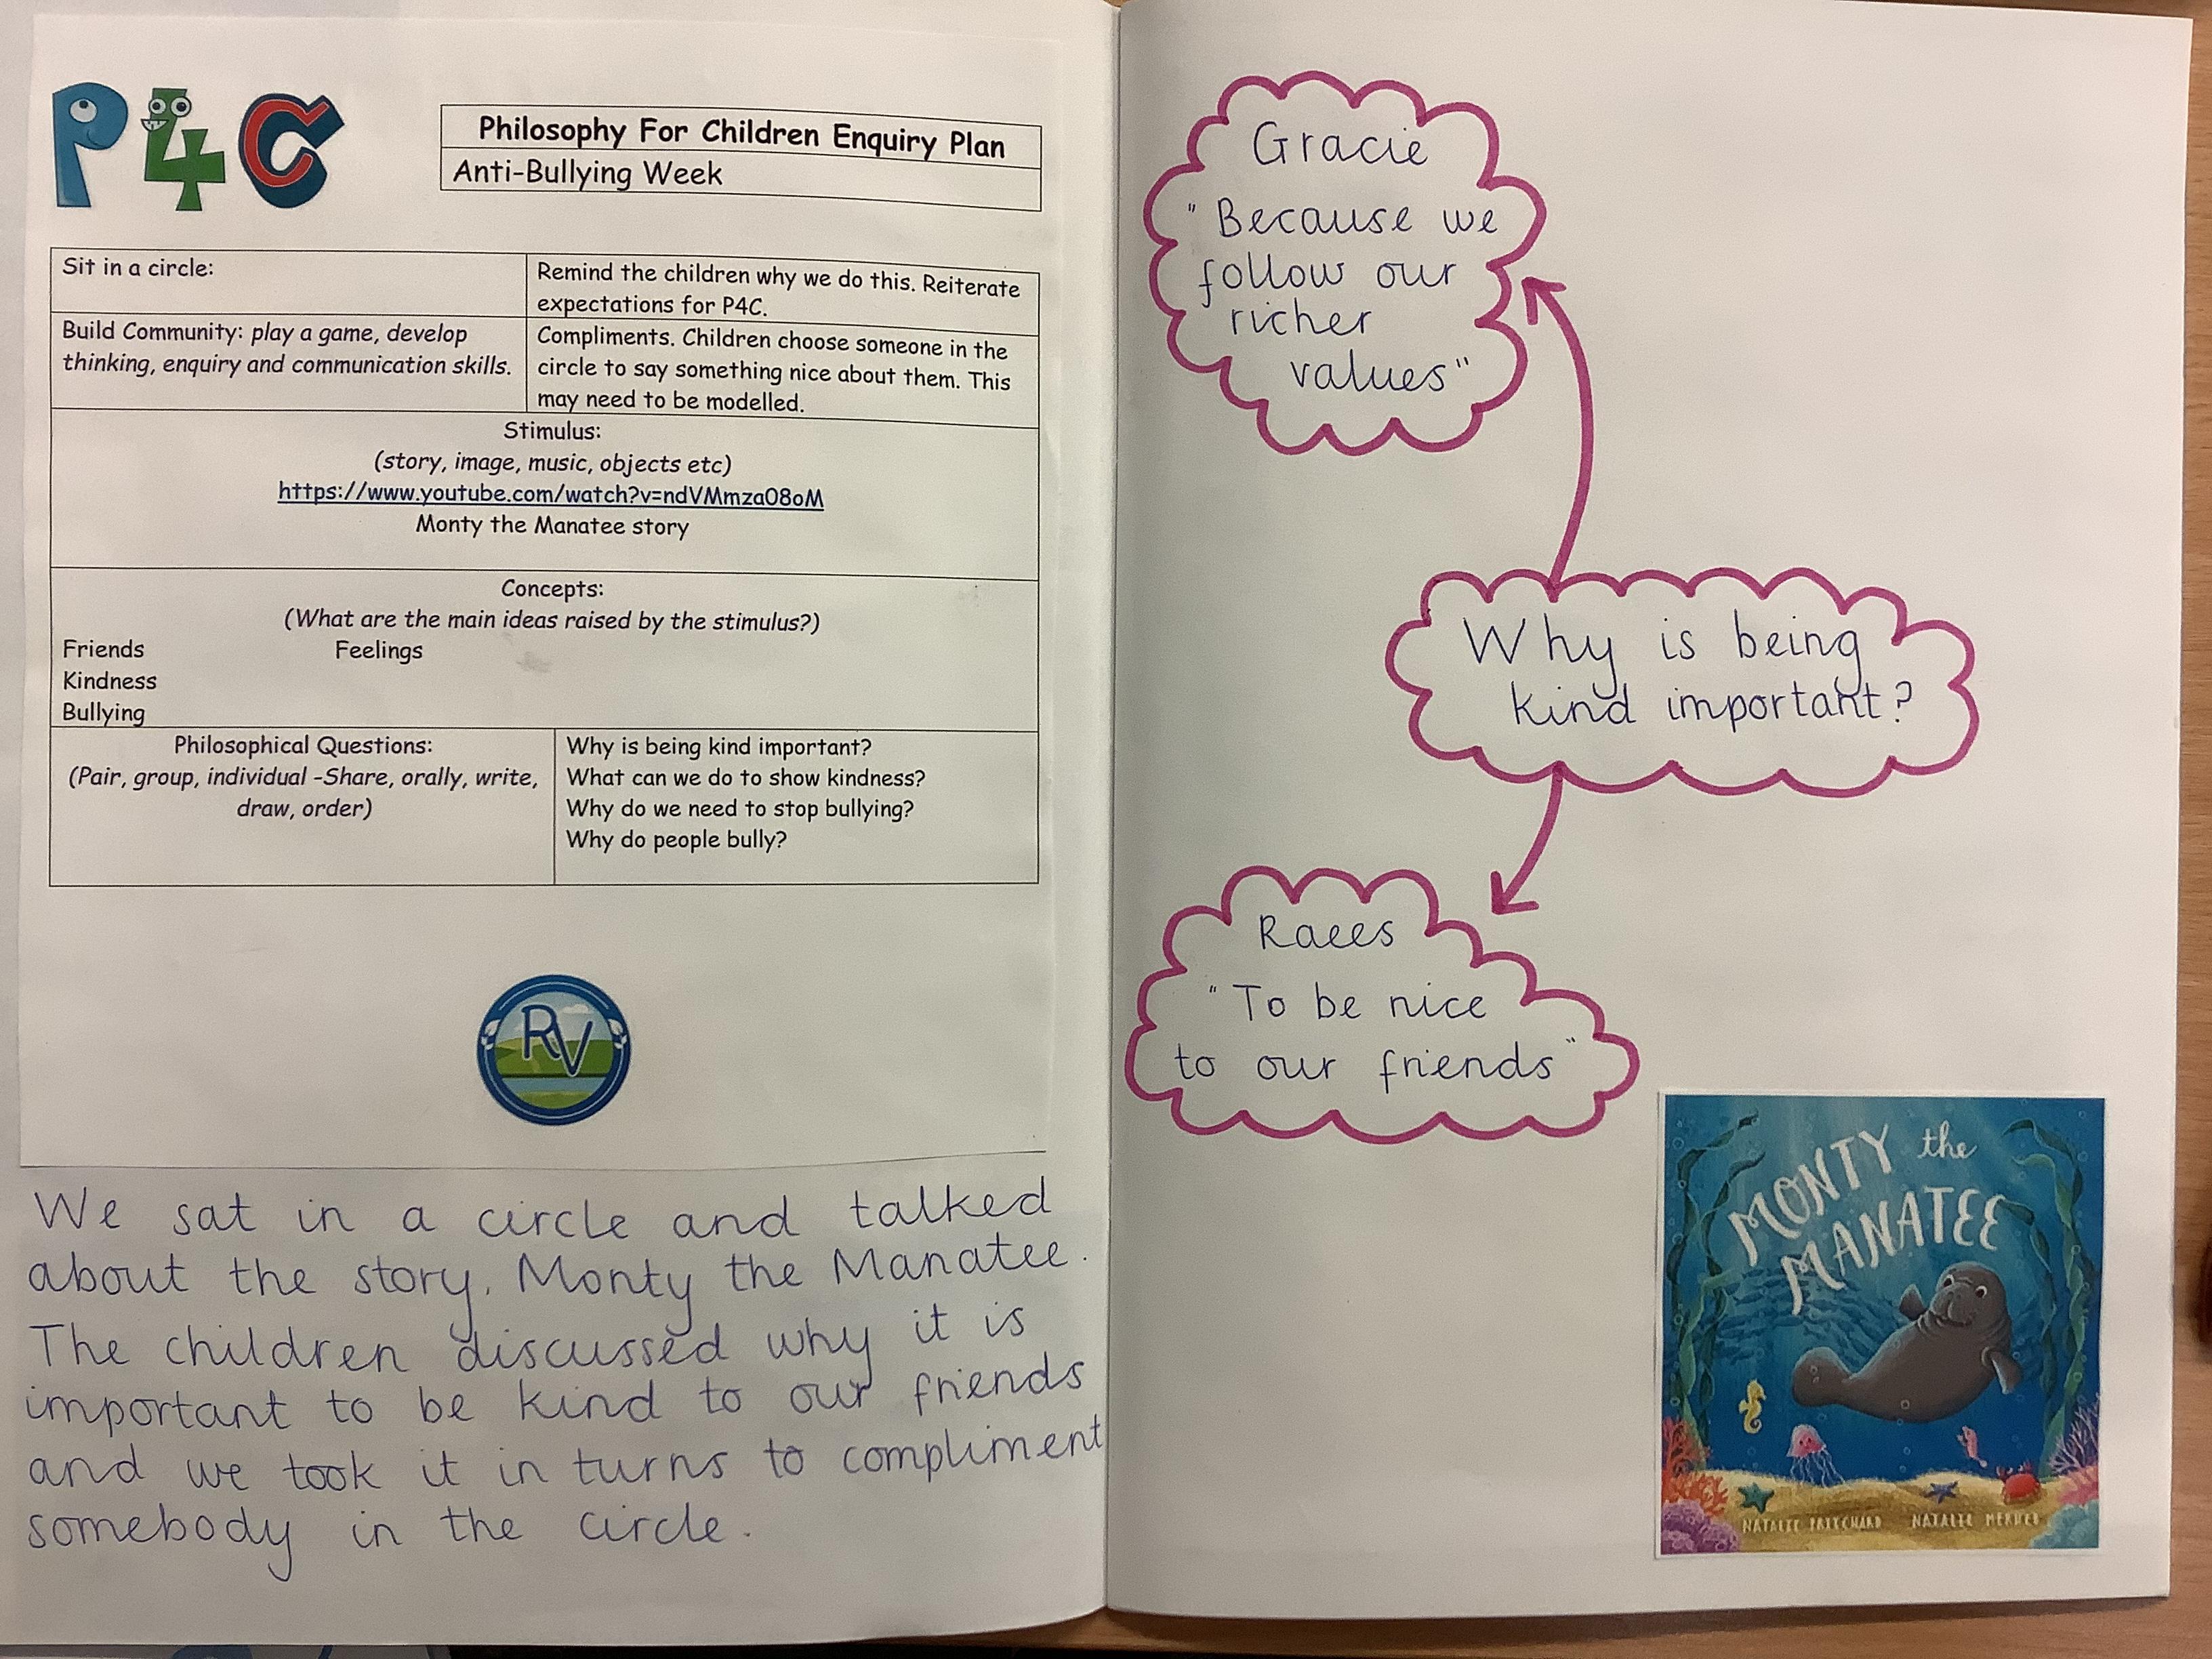 P4C
Philosophy For Children Enquiry Plan
Anti-Bullying Week
Sit in a circle:
Remind the children why we do this. Reiterate
expectations for P4C.
Build Community: play a game, develop
thinking, enquiry and communication skills.
Compliments. Children choose someone in the
circle to say something nice about them. This
may need to be modelled.
Stimulus:
(story, image, music, objects etc)
https://www.youtube.com/watch?v=ndVMmza08oM
Monty the Manatee story
Concepts:
(What are the main ideas raised by the stimulus?)
Friends Feelings
Kindness
Bullying
Philosophical Questions:
(Pair, group, individual -Share, orally, write,
draw, order)
Why is being kind important?
What can we do to show kindness?
Why do we need to stop bullying?
Why do people bully?
RV
We sat in a circle and talked
about the story, Monty the Manatee.
The children discussed why it is
important to be kind to our friends
and we took it in turns to compliment
somebody in the circle.
Gracie
"Because we
follow our
richer
values"
Why is being
kind important?
Raees
"To be nice
to our friends"
MONTY the
MANATEE
NATALIE PRITCHARD NATALIE MERHEB